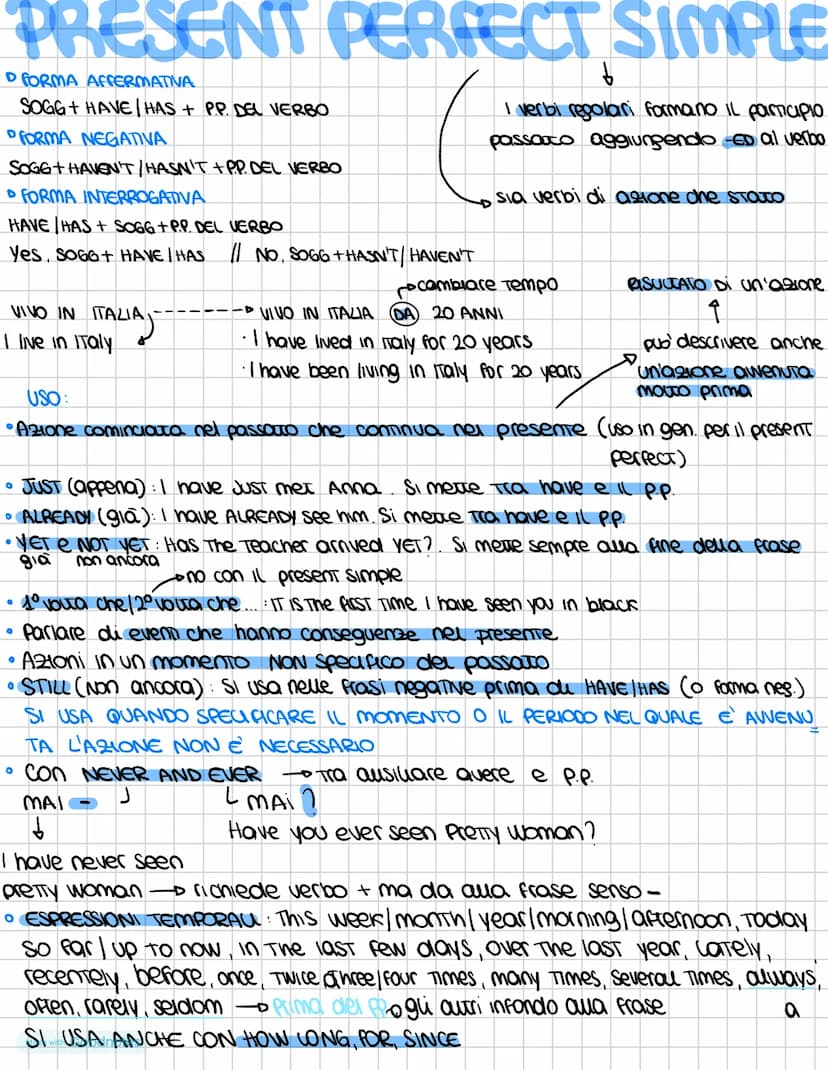 PRESENT PERFECT SIMPLE
FORMA AFFERMATIVA
SOGG + HAVE/HAS + P.P. DEL VERBO
FORMA NEGATIVA
SOGG + HAVEN'T/HASN'T + P.P. DEL VERBO
FORMA INTERROGATIVA
HAVE/HAS + SOGG + P.P. DEL VERBO
Yes, SOGG + HAVE/HAS // NO, SOGG + HASN'T/HAVEN'T
I verbi regolari formano il participio
passato aggiungendo -ED al verbo
sia verbi di azione che STATO
cambiare tempo
VIVO IN ITALIA
I live in Italy
VIVO IN ITALIA DA 20 ANNI
· I have lived in Italy for 20 years
· I have been living in Italy for 20 years
RISULTATO DI un'azione
può descrivere anche
un'azione avvenuta
molto prima
USO:
• Azione cominciata nel passato che continua nel presente (uso in gen. per il present
perfect)
• JUST (appena): I have just met Anna. Si mette tra have e il p.p.
• ALREADY (già): I have ALREADY see him. Si mette tra have e il p.p.
• YET e NOT YET: Has the teacher arrived YET?. Si mette sempre alla fine della frase
già non ancora
no con il present simple
• 1° volta che/2° volta che...: IT IS THE FIRST TIME I have seen you in black
• Parlare di eventi che hanno conseguenze nel presente
• Azioni in un momento NON specifico del passato
• STILL (Non ancora): Si usa nelle frasi negative prima di HAVE/HAS (o forma neg.)
SI USA QUANDO SPECIFICARE IL MOMENTO O IL PERIODO NEL QUALE E' AVVENU
TA L'AZIONE NON E' NECESSARIO
• Con NEVER AND EVER → tra ausiliare avere e p.p.
MAI - MAI?
Have you ever seen Pretty Woman?
I have never seen
pretty woman → richiede verbo + ma da alla frase senso -
• ESPRESSIONI TEMPORALI: This week/month/year/morning/afternoon, today
so far/up to now, in the last few days, over the last year, lately,
recentely, before, once, twice three/four times, many times, several times, always,
often, rarely, seldom → prima del pp o gli altri infondo alla frase
a
SI USA ANCHE CON HOW LONG, FOR, SINCE